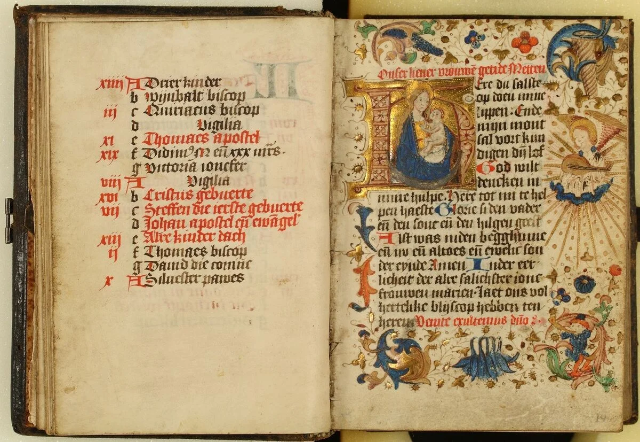 xiiii A Drier kinder
b Wijnbalt biscop
iii c Ciriacus biscop
d Vigilia
xi e Thomaes apostel
xix f
g Victoria ioncfer
viii A Vigilia
xvi b Cristus gebuerte
vii c Steffen die ierste gebuerte
d Johan apostel en ewangel
xiiii e Alre kinder dach
ii f Thomaes biscop
g David die coninc
x A Silvester pawes
Onser liever vrouwen getide Metten
Ere du salste
op doen mine
lippen Ende
mijn mont
sal vort kun
digen dijn lof
God wilt
dencken in
mine hulpe Here tot mi te hel
pen haeste Glorie si den vader
en den sone en den hilgen geest
Alst was inden beghinne
en nu en altoes en ewelic son
der eynde Amen Inder eer
licheit der alre salichster ionc
frouwen marien Laet ons vol
hertelike blijscop hebben den
heren Venite exultemus dno